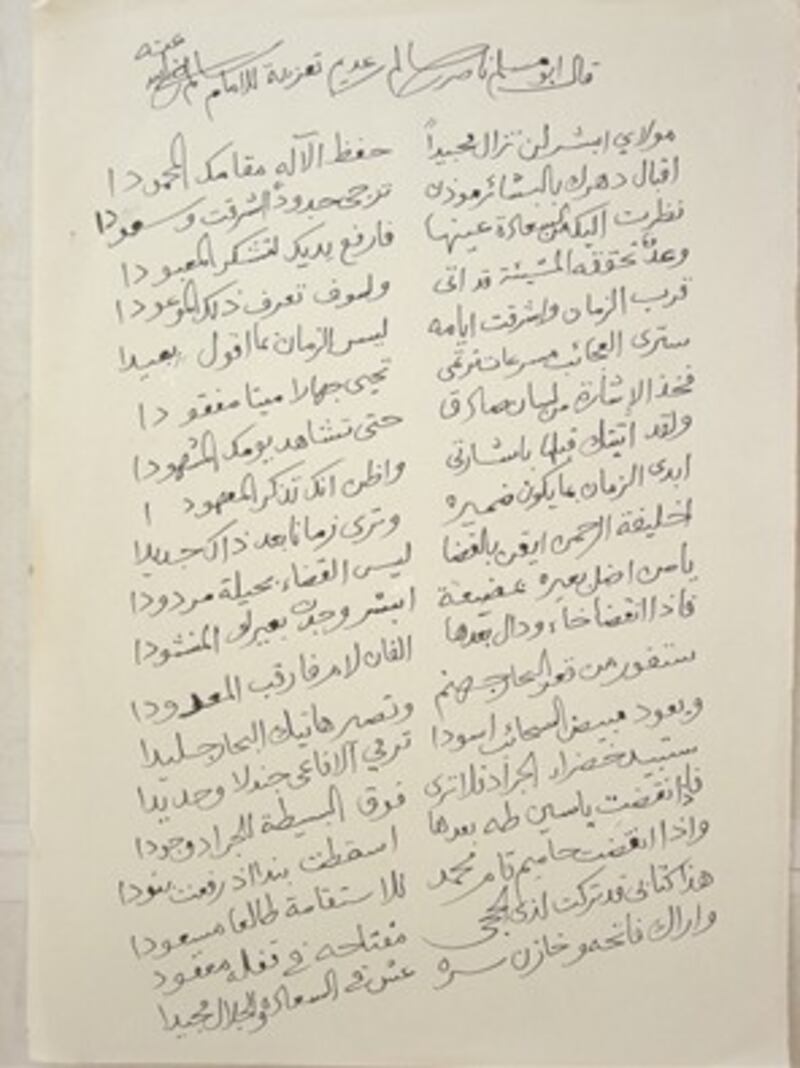 قال ابو مسلم ناصر بن سالم بن عديم تعزية للامام سالم بن راشد
عينه
مولاي ابشر لن تزال مجيداً حفظ الآله مقامك المحمودا
اقبال دهرك بالبشائر موذن ترجى جدوداً اشرقت وسعودا
نظرت اليك من السعادة عينها فارفع يديك لتشكر المعبودا
وعدٌ تحققه المشيئة قد اتى ولسوف تعرف ذلك الموعودا
قرب الزمان واشرقت ايامه ليس الزمان بما اقول بعيدا
سترى العجائب مسرعات ترتمي تحيي جهارا ميتا مفقودا
فخذ الإشارة من لسان صادق حتى تشاهد يومك المشهودا
ولقد اتيتك قبلها باشارتي واظن انك تذكر المعهودا
ابدى الزمان بما يكون ضميره وترى زمانا بعد ذاك جديدا
اخليفة الرحمن ايقن بالقضا ليس القضاء بحيلة مردودا
يا من اضل بعيره بمضيعة ابشر وجدت بعيرك المنشودا
فاذا انقضا خاء ودال بعدها الفان لام فارقب المعدودا
ستفور من قعر البحار جهنم وتصير هاتيك البحار جليدا
ويعود مبيض السحائب اسودا ترمي الافاعي جندلا وحديدا
ستبيد خضراء الجراد فلا ترى فوق البسيطة للجراد وجودا
فاذا انقضت ياسين طه بعدها اسقطت بندا اذ رفعت بنودا
واذا انقضت حاميم قام محمد للاستقامة طالعا مسعودا
هذا كتابي قد تركت لذي الحجى مفتاحه في قفله معقود
واراك فاتحه وخازن سره عش في السعادة والجلال مجيدا